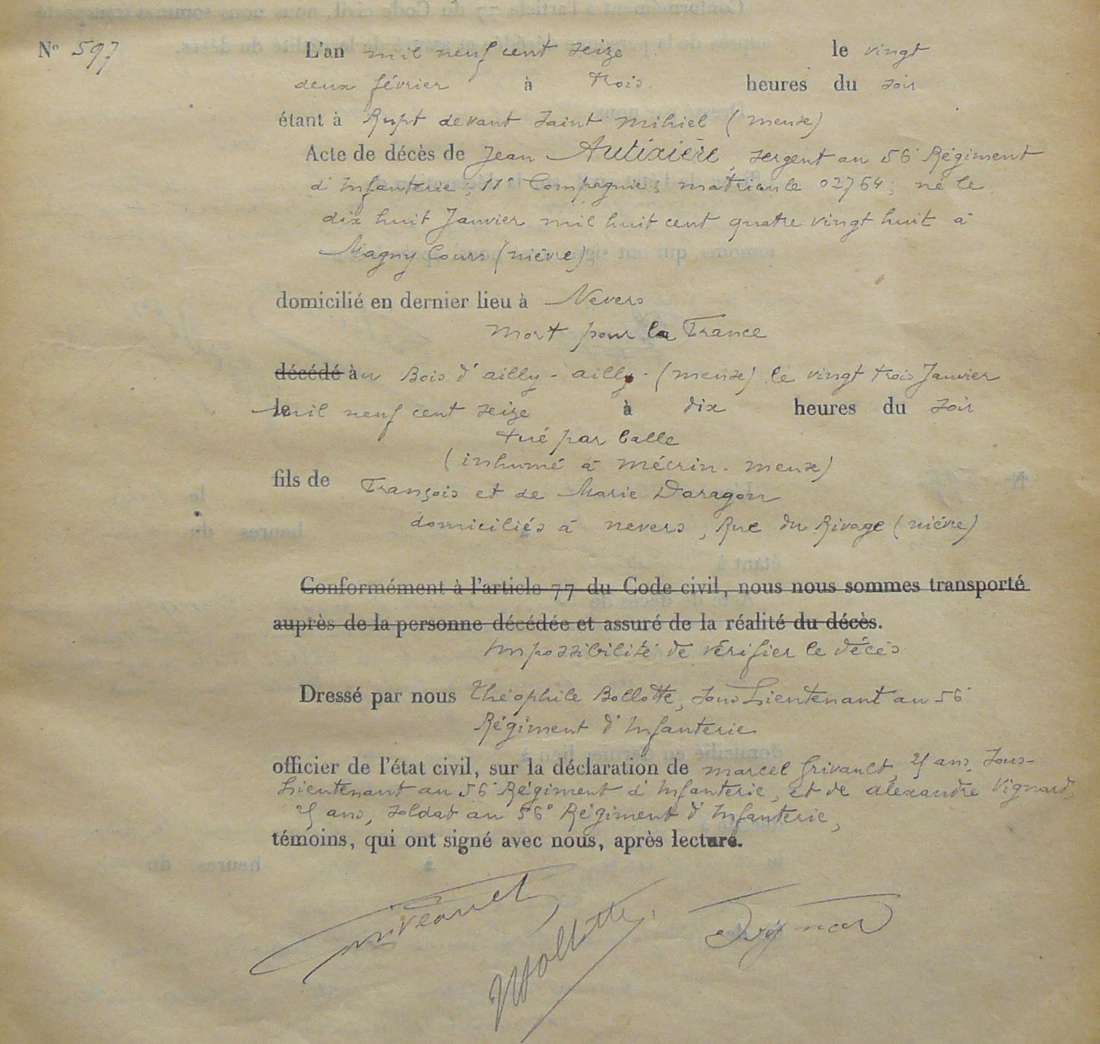 N° 597 L'an mil neuf cent seize le vingt
deux février à trois heures du soir
étant à Rupt devant Saint Mihiel (meuse)
Acte de décès de Jean Autixier, sergent au 56e Régiment
d'Infanterie, 11e Compagnie; matricule 02764; né le
dix huit Janvier mil huit cent quatre vingt huit à
Magny Cours (nièvre)
domicilié en dernier lieu à Nevers
Mort pour la France
décédé au Bois d'ailly - ailly - (meuse) le vingt trois Janvier
le mil neuf cent seize à dix heures du soir
tué par balle
(inhumé à mécrin. meuse)
fils de François et de Marie Daragon
domiciliés à nevers, Rue du Rivage (nièvre)
Conformément à l'article 77 du Code civil, nous nous sommes transporté
auprès de la personne décédée et assuré de la réalité du décès.
Impossibilité de vérifier le décès
Dressé par nous Théophile Bollotte, sous Lieutenant au 56e
Régiment d'Infanterie
officier de l'état civil, sur la déclaration de marcel Grivault, ans, Sous-
Lieutenant au 56e Régiment d'Infanterie, et de alexandre Vignard,
ans, soldat au 56e Régiment d'Infanterie,
témoins, qui ont signé avec nous, après lecture.
Bollotte